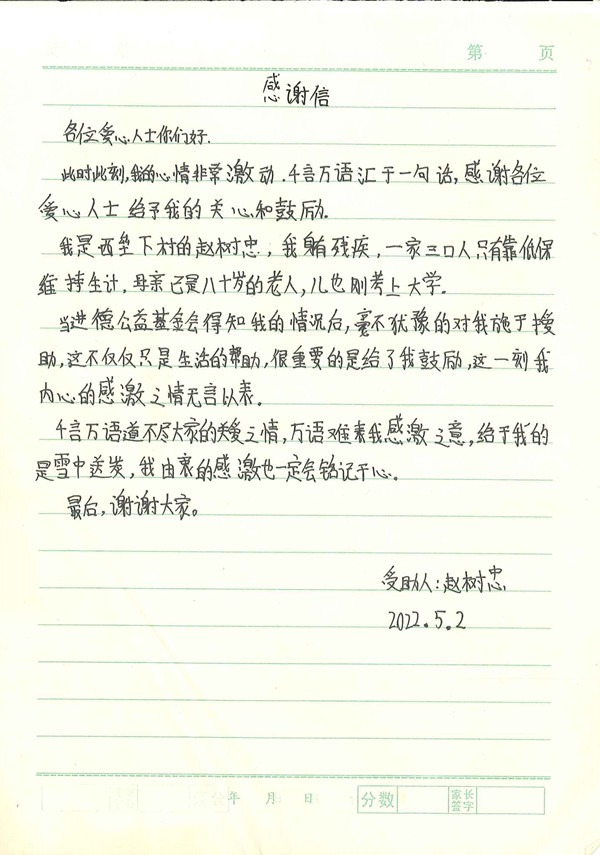 第 页
感谢信
各位爱心人士你们好.
此时此刻,我的心情非常激动.千言万语汇于一句话,感谢各位
爱心人士给予我的关心和鼓励.
我是西垡下村的赵树忠,我身有残疾,一家三口人只有靠低保
维持生计.母亲已是八十岁的老人,儿也刚考上大学.
当进德公益基金会得知我的情况后,毫不犹豫的对我施于援
助,这不仅仅只是生活的帮助,很重要的是给了我鼓励,这一刻我
内心的感激之情无言以表.
千言万语道不尽大家的关爱之情,万语难表我感激之意,给于我的
是雪中送炭,我由衷的感激也一定会铭记于心。
最后,谢谢大家。
受助人:赵树忠
2022.5.2
年 月 日 分数 家长签字